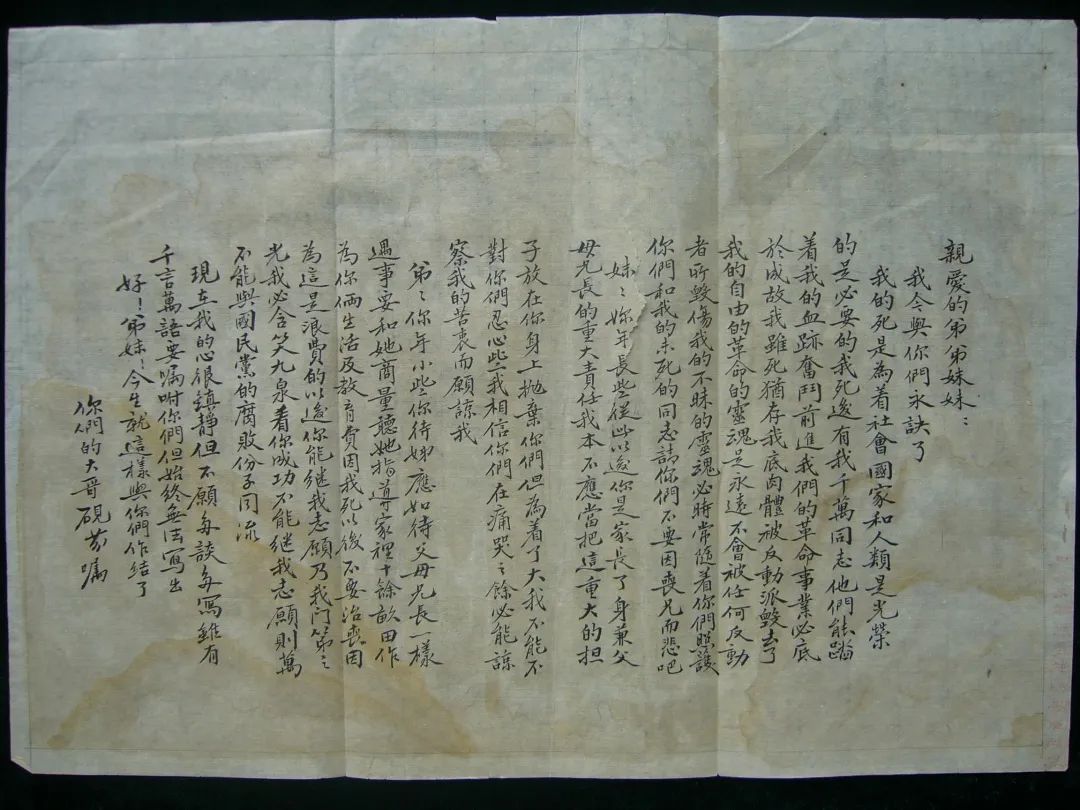 親愛的弟弟妹妹：
我今與你們永訣了
我的死是為着社會國家和人類是光榮
的是必要的我死後有我千萬同志他們能踏
着我的血跡奮鬥前進我們的革命事業必底
於成故我雖死猶存我底肉體被反動派毀去了
我的自由的革命的靈魂是永遠不會被任何反動
者所毀傷我的不昧的靈魂必時常隨着你們照護
你們和我的未死的同志請你們不要因喪兄而悲吧
妹〻妳年長些從此以後你是家長了身兼父
母兄長的重大責任我本不應當把這重大的担
子放在你身上抛棄你們但為着了大我不能不
對你們忍心些我相信你們在痛哭之餘必能諒
察我的苦衷而願諒我
弟〻你年小些你待姊應如待父母兄長一樣
遇事要和她商量聽她指導家裡十餘畝田作
為你倆生活及教育費因我死以後不要治喪因
為這是浪費的以後你能繼我志願乃我門第之
光我必含笑九泉看你成功不能繼我志願則萬
不能與國民黨的腐敗份子同流
現在我的心很鎮靜但不願多談多寫雖有
千言萬語要囑咐你們但始終無法寫出
好！弟妹！今生就這樣與你們作結了
你們的大哥硯芬囑